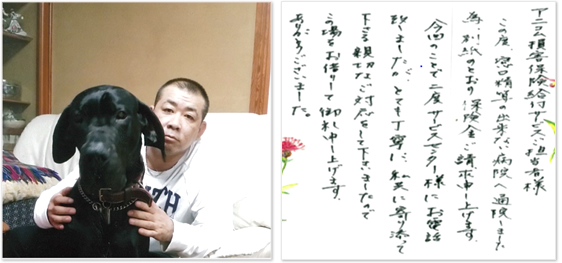 アニコム損害保険給付サービス 担当者様
この度、窓口精算 出来ない病院へ通院しました
為、別紙のとおり 保険金ご請求申し上げます。
今回のことで二度サービスセンター様にお電話
致しましたが、とても丁寧に、私共に寄り添って
下さる親切なご対応をして下さいましたので
この場をお借りして御礼申し上げます。
ありがとうございました。